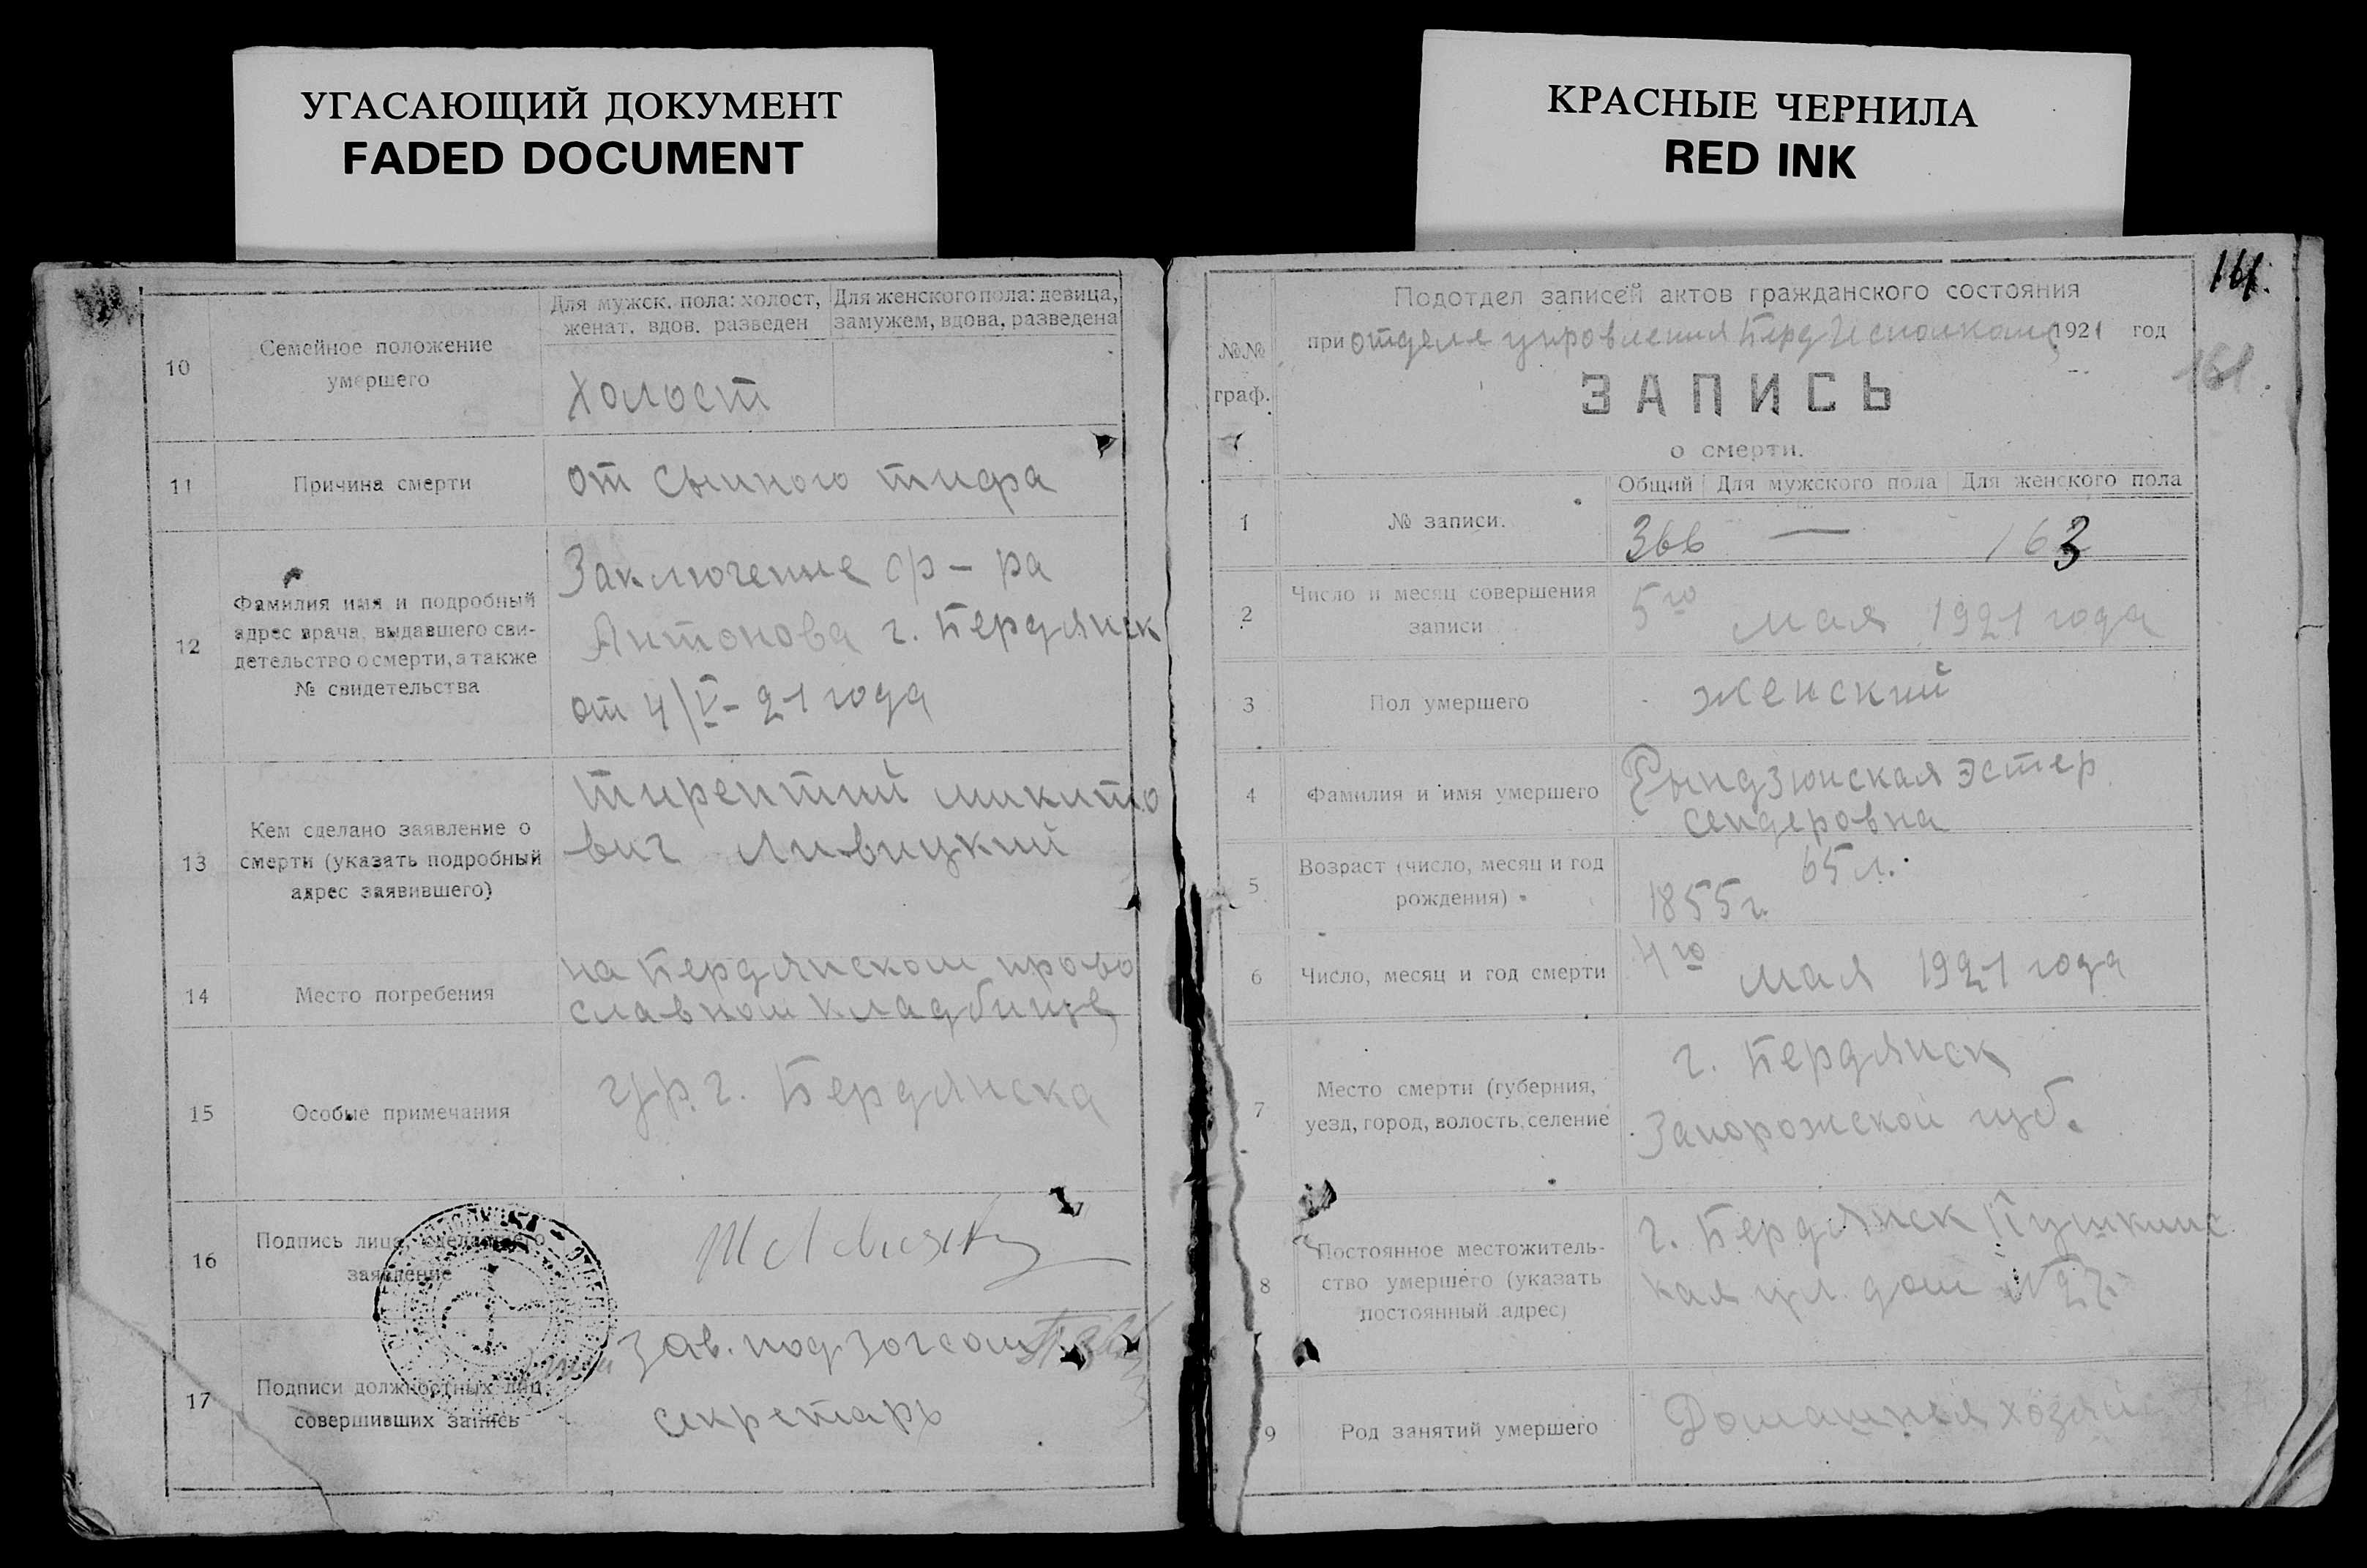 УГАСАЮЩИЙ ДОКУМЕНТ
FADED DOCUMENT
КРАСНЫЕ ЧЕРНИЛА
RED INK
10
Семейное положение
умершего
Для мужск. пола: холост,
женат, вдов, разведен
Для женского пола: девица,
замужем, вдова, разведена
холост
11
Причина смерти
от сыпного тифа
12
Фамилия имя и подробный
адрес врача, выдавшего сви-
детельство о смерти, а также
№ свидетельства
Заключение др-ра
Антонова г. Бердянск
от 4/V-21 года
13
Кем сделано заявление о
смерти (указать подробный
адрес заявившего)
Тирентий микито
вич Ливицкий
14
Место погребения
на Бердянском право
славном кладбище
15
Особые примечания
гр. г. Бердянска
16
Подпись лица, сделавшего
заявление
17
Подписи должностных лиц,
совершивших запись
Зав. подзагсом
секретарь
161.
161.
№№
граф.
Подотдел записей актов гражданского состояния
при отделе управления Берд Исполкома 1921 год
ЗАПИСЬ
о смерти.
1
№ записи.
Общий
Для мужского пола
Для женского пола
366 — 163
2
Число и месяц совершения
записи
5го мая 1921 года
3
Пол умершего
женский
4
Фамилия и имя умершего
Рындзюнская Эстер
Сендеровна
5
Возраст (число, месяц и год
рождения)
65 л.
1855 г.
6
Число, месяц и год смерти
4го мая 1921 года
7
Место смерти (губерния,
уезд, город, волость, селение
г. Бердянск
Запорожской губ.
8
Постоянное местожитель-
ство умершего (указать
постоянный адрес)
г. Бердянск Пушкинс
кая ул. дом №27
9
Род занятий умершего
Домашняя хозяй